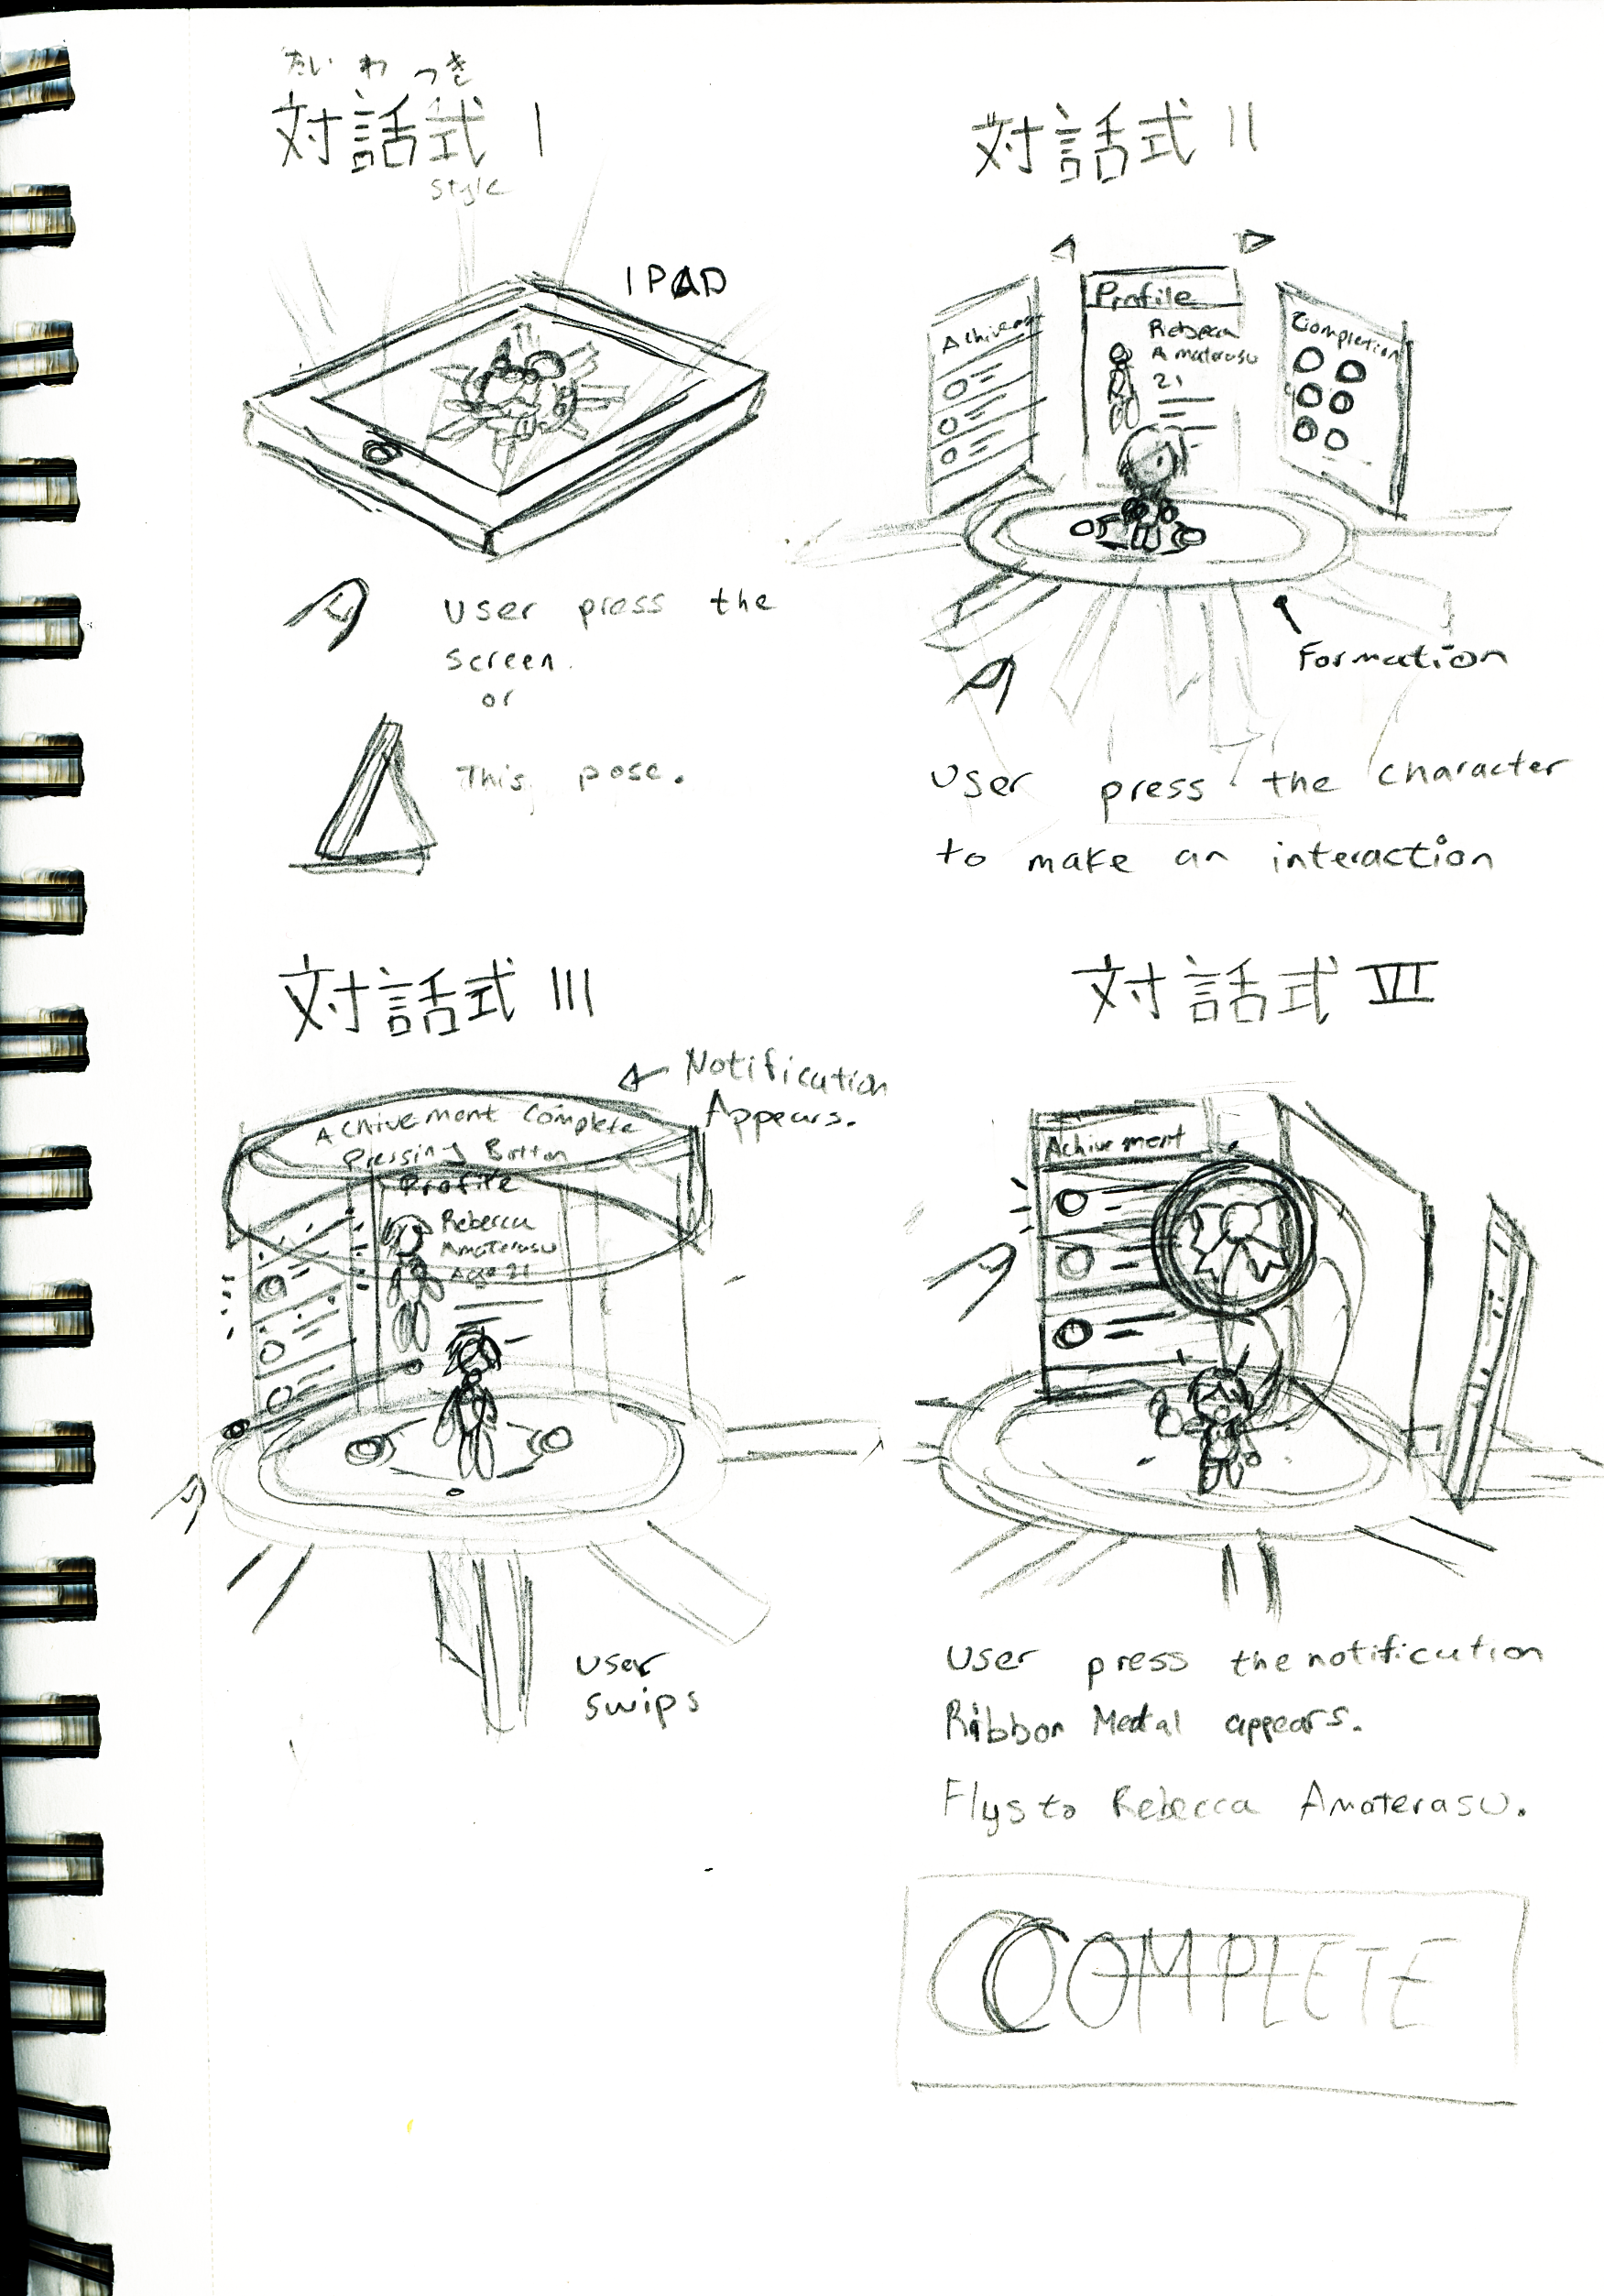 たい わ つき
対話式 I
style
IPAD
User press the
screen.
or
This pose.
対話式 II
Achivement
Profile
Rebecca
Amaterasu
21
Completion
Formation
User press the character
to make an interaction
対話式 III
Notification
Appears.
Achivement Complete
Pressing Button
Profile
Rebecca
Amaterasu
Age 21
User
swips
対話式 VI
Achivement
User press the notification
Ribbon Medal appears.
Flys to Rebecca Amaterasu.
COMPLETE